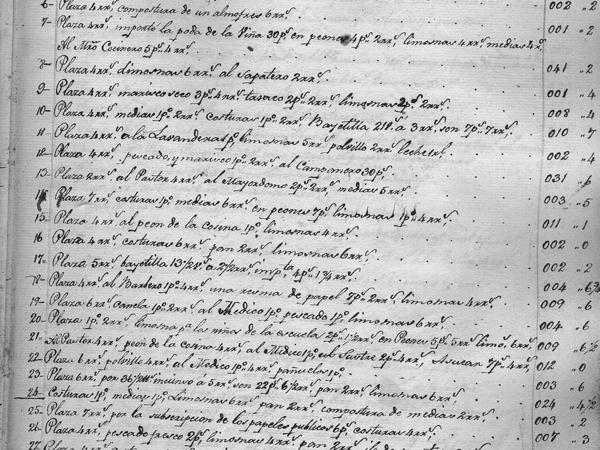 6- Plaza 4rr.s compostura de un almofres 6rr.s 002 " 2
7- Plaza 4rr.s importó la poda de la Viña 30p.s en peones 4p.s 2rr.s limosnas 4rr.s medias 4r.s 001 " 2
Al Mro Cocinero 5p.s 4rr.s
8- Plaza 4rr.s limosnas 6rr.s al Sapatero 2rr.s 041 " 2
9- Plaza 4rr.s marisco seco 3p.s 4rr.s tavaco 2p.s 2rr.s limosnas 2p.s 2rr.s 001 " 4
10- Plaza 4rr.s medias 1p.o 2rr.s costuras 1p.o 2rr.s Bayetilla 21v.s a 3rr.s son 7p.s 7rr.s 008 " 4
11 Plaza 4rr.s a la Lavandera limosnas 5rr.s polvillo 2rr.s leche 010 " 7
12- Plaza 4rr.s pescado, y marisco 1p.o 2rr.s al 30p.s 002 " 4
13- Plaza 2rr.s al Pastor 4rr.s al Mayordomo 2p.s 2rr.s medias 5rr.s 031 " 6
14 Plaza 7rr.s costuras 1p.o medias 6rr.s en peones 7p.s limosnas 1p.o 4rr.s 003 " 5
15 Plaza 4rr.s al peon de la Cosina 1p.o limosnas 4rr.s 011 " 1
16 Plaza 4rr.s costuras 6rr.s pan 2rr.s limosnas 6rr.s 002 " 0
17- Plaza 5rr.s bayetilla 13½ a 2½rr.s imp.ta 4p.s 1¾rr.s 002 " 2
18- Plaza 4rr.s al Barbero 1p.o 4rr.s una resma de papel 7p.s 2rr.s limosnas 4rr.s 004 " 6¾
19- Plaza 6rr.s Canela 1p.o 2rr.s al Medico 1p.o pescado 1p.o limosnas 6rr.s 009 " 6
20- Plaza 1p.o 2rr.s limosna a la niña de la escuela 2p.s 1½rr.s en Peones 5p.s 5rr.s limos.s 6rr.s 004 " 6
21- Al Pastor 4rr.s peon de la Cosina 4rr.s al Medico 1p.o al Sastre 2p.s 4rr.s Asucar 7p.s 4rr.s 009 " 6½
22 Plaza 6rr.s polvillo 4rr.s al Medico 1p.o 4rr.s pañuelos 1p.o 012 " 0
23 Plaza 6rr.s por 36½ a 5rr.s son 22p.s 6½rr.s pan 2rr.s limosnas 6rr.s 003 " 6
24 Costuras 1p.o medias 1p.o Limosnas 6rr.s pan 2rr.s compostura de medias 2rr.s 024 " 4½
25 Plaza 7rr.s por la subscripcion de los papeles publicos 6p.s costuras 4rr.s 003 " 2
26 Plaza 4rr.s pescado fresco 2p.s limosnas 4rr.s pan 2rr.s 007 " 3
27 Plaza 4rr.s